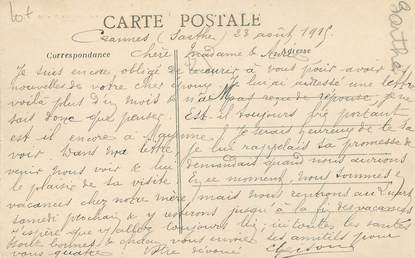 lot
Sarthe
CARTE POSTALE
(Sarthe) 23 août 1915
Correspondance
Adresse
chère madame
Je suis encore obligé de à vous pour avoir des
nouvelles de votre cher Je lui ai adressé une lettre
voilà plus d'un mois & n'ai pas reçu de réponse, je ne
sais donc que penser. Est-il toujours bien portant
est-il encore à Je serais heureux de le sa-
voir. Dans ma lettre je lui rappelais sa promesse de
venir nous voir & lui demandais quand nous aurions
le plaisir de sa visite. En ce moment, nous sommes en
vacances chez notre mère, mais nous rentrons au
samedi prochain & y resterons jusqu'à la fin des vacances
J'espère que vous allez toujours bien, ici toutes les santés
sont bonnes, & chacun vous envoie ses amitiés pour
vous quatre. Votre dévoué